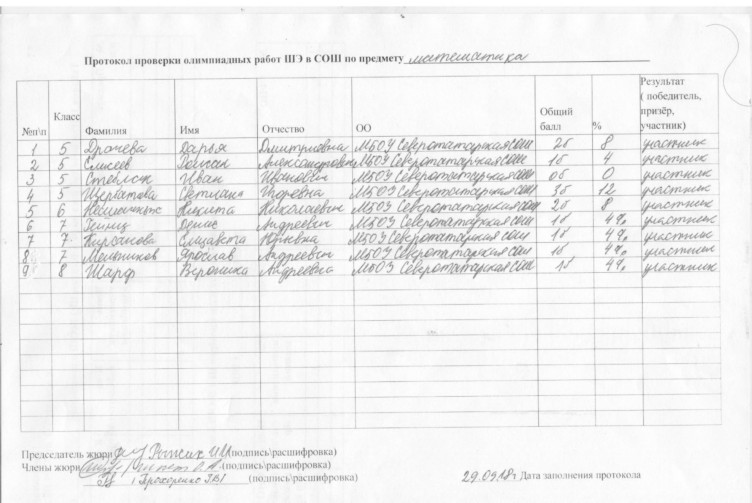 Протокол проверки олимпиадных работ ШЭ в СОШ по предмету математика
№п\п Класс Фамилия Имя Отчество ОО Общий балл % Результат ( победитель, призёр, участник)
1 5 Драчева Дарья Дмитриевна МБОУ Северотатарская СОШ 2б 8 участник
2 5 Елисеев Александрович МБОУ Северотатарская СОШ 1б 4 участник
3 5 Иван Иванович МБОУ Северотатарская СОШ 0б 0 участник
4 5 Светлана Игоревна МБОУ Северотатарская СОШ 3б 12 участник
5 6 Никита Николаевич МБОУ Северотатарская СОШ 2б 8 участник
6 7 Денис Андреевич МБОУ Северотатарская СОШ 1б 4% участник
7 7 Кирсанова Елизавета Юрьевна МБОУ Северотатарская СОШ 1б 4% участник
8 7 Мельников Ярослав Андреевич МБОУ Северотатарская СОШ 1б 4% участник
9 8 Шарф Вероника Андреевна МБОУ Северотатарская СОШ 1б 4% участник
Председатель жюри (подпись\расшифровка)
Члены жюри (подпись\расшифровка)
(подпись\расшифровка) 29.09.18г Дата заполнения протокола